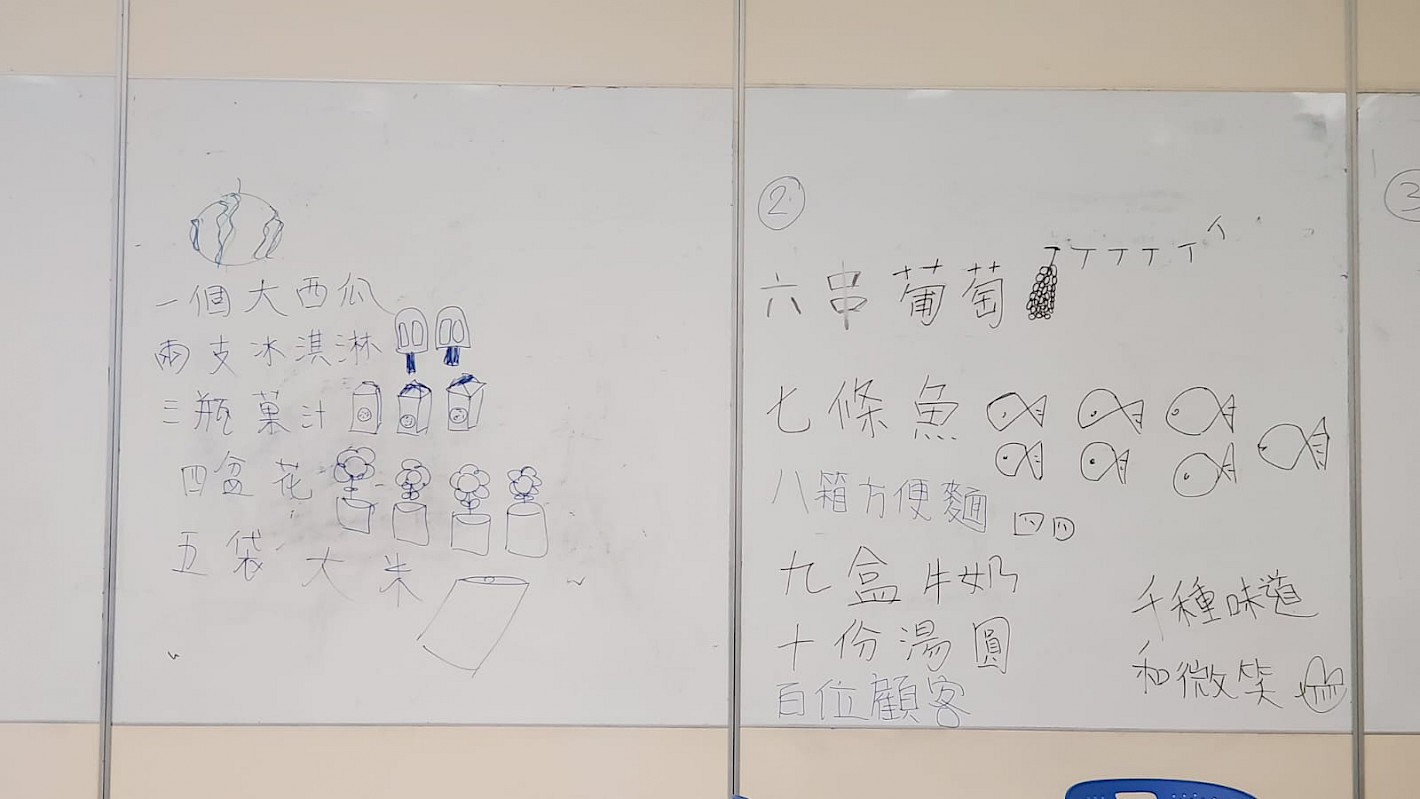 一個大西瓜
兩支冰淇淋
三瓶菓汁
四盆花
五袋大米
②
六串葡萄
七條魚
八箱方便麵
九盒牛奶
十份湯圓
百位顧客
千種味道
和微笑
③